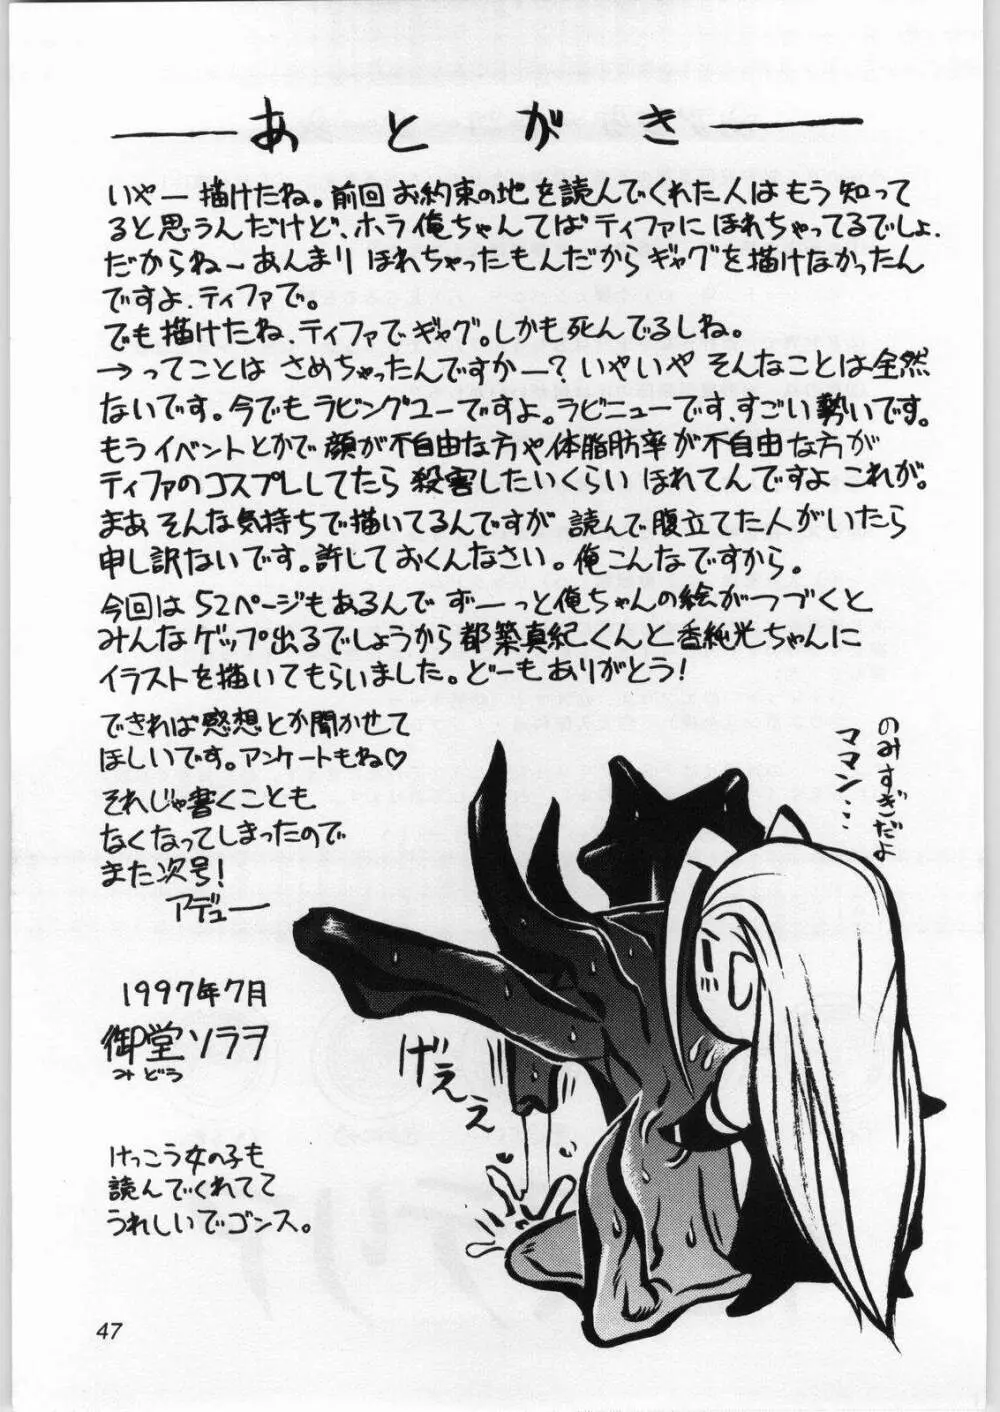 あとがき
いやー描けたね。前回お約束の地を読んでくれた人はもう知って
ると思うんだけど、ホラ俺ちゃんてばティファにほれちゃってるでしょ、
だからねーあんまりほれちゃったもんだからギャグを描けなかったん
ですよ、ティファで。
でも描けたね、ティファでギャグ。しかも死んでるしね。
→ってことは さめちゃったんですかー？いやいや そんなことは全然
ないです。今でもラビングユーですよ。ラビニューです、すごい勢いです。
もうイベントとかで顔が不自由な方や体脂肪率が不自由な方が
ティファのコスプレしてたら 殺害したいくらい ほれてんですよ これが。
まあ そんな気持ちで描いてるんですが 読んで腹立てた人がいたら
申し訳ないです。許しておくんなさい。俺こんなですから。
今回は52ページもあるんで ずーっと俺ちゃんの絵がつづくと
みんなゲップ出るでしょうから都築真紀くんと香純光ちゃんに
イラストを描いてもらいました。どーもありがとう！
できれば感想とか聞かせて
ほしいです。アンケートもね♡
それじゃ書くことも
なくなってしまったので
また次号！
アデュー
1997年7月
御堂ソラヲ
みどう
けっこう女の子も
読んでくれてて
うれしいでゴンス。
のみすぎだよ
ママン・・・
げぇぇぇ
47